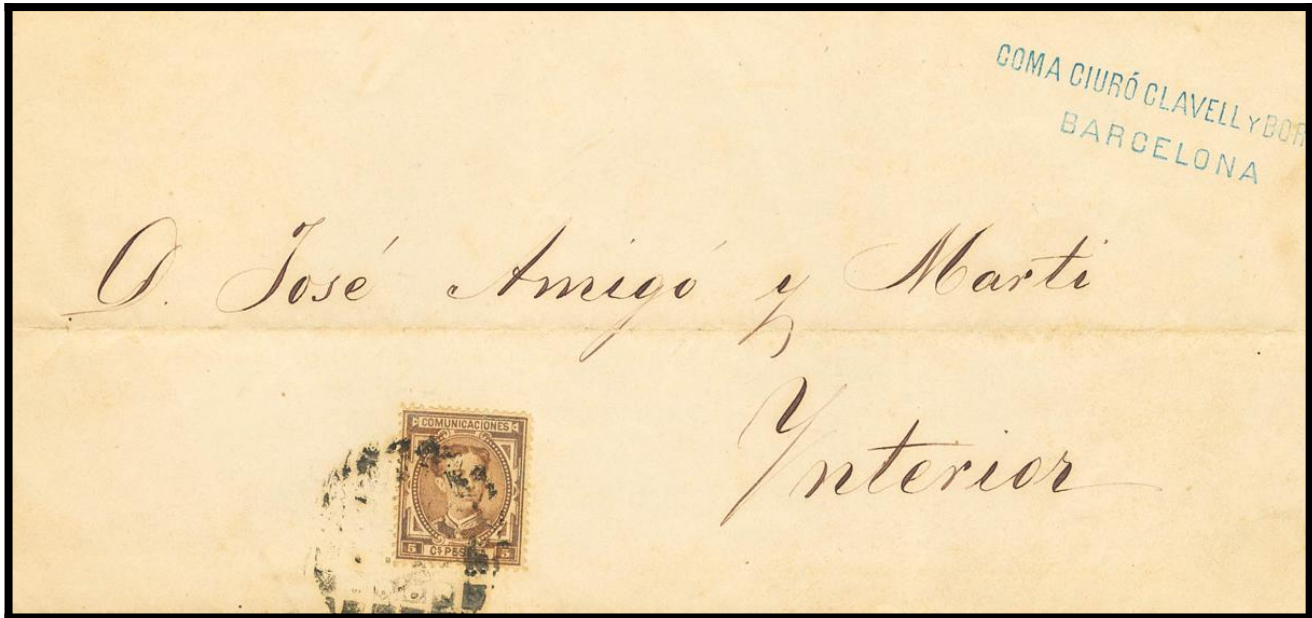 COMA CIURÓ CLAVELL Y BOR
BARCELONA
D. José Amigó y Marti
Ynterior
COMUNICACIONES
5 Cs PES 5